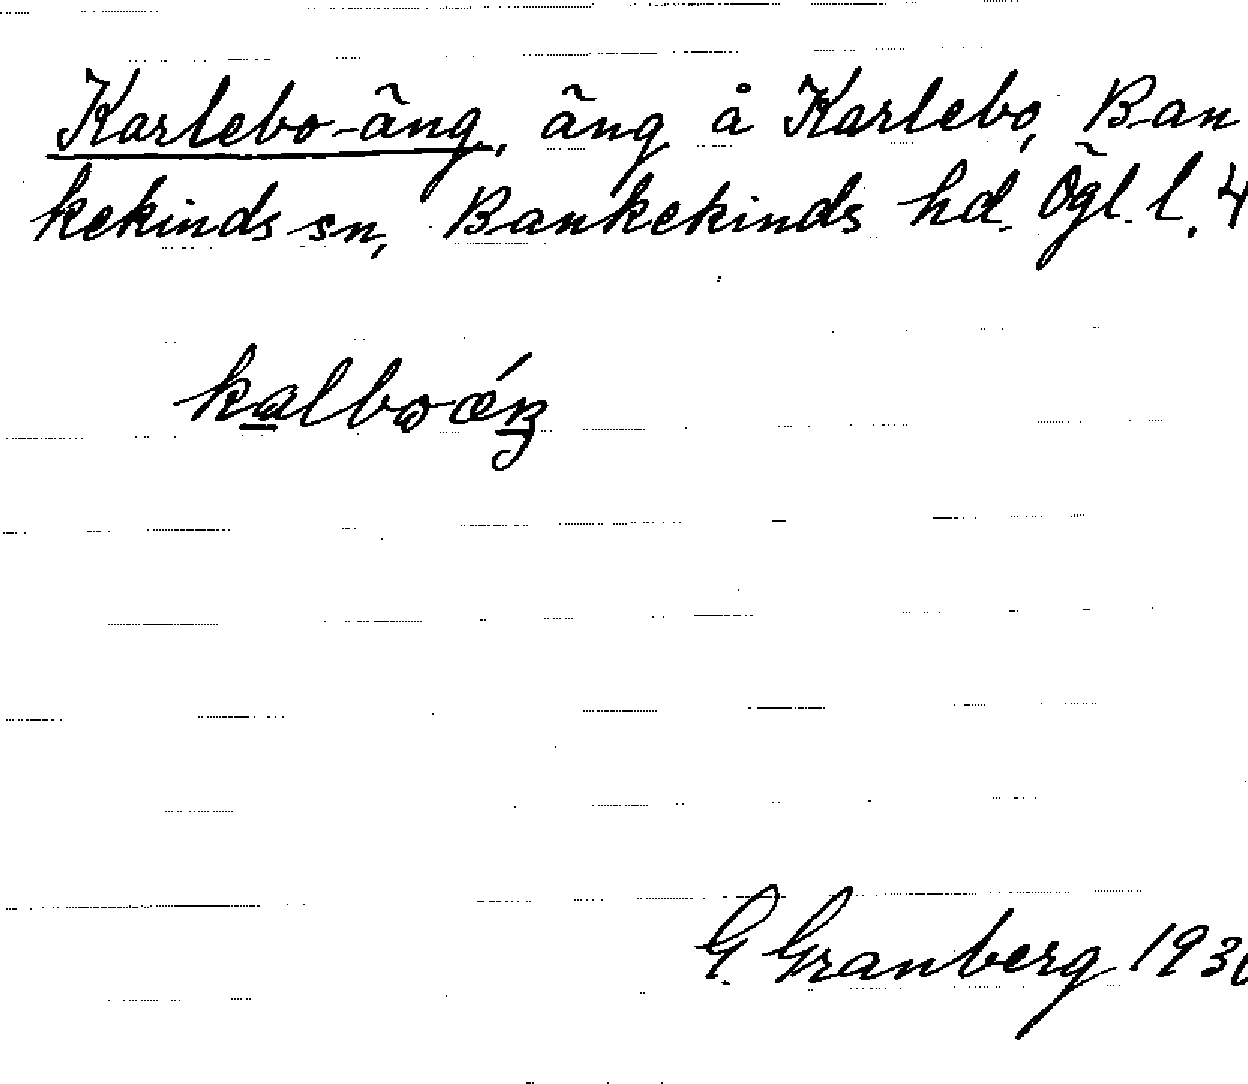 Karlebo-äng, äng å Karlebo, Ban
kekinds sn, Bankekinds hd. Ögl. l. 4
kalboǽŋ
G. Granberg 193